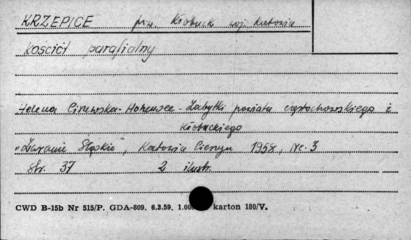 KRZEPICE pow. Kłobuck woj. Katowice
Kościół parafialny
Helena Cirewska-Hohensee - Zabytki powiatu częstochowskiego i
kłobuckiego
"Zaranie Śląskie", Katowice Cieszyn 1958, Nr. 3
Str. 37 2 ilustr.
CWD B-15b Nr 515/P. GDA-809. 6.3.59. 1.00 karton 180/V.